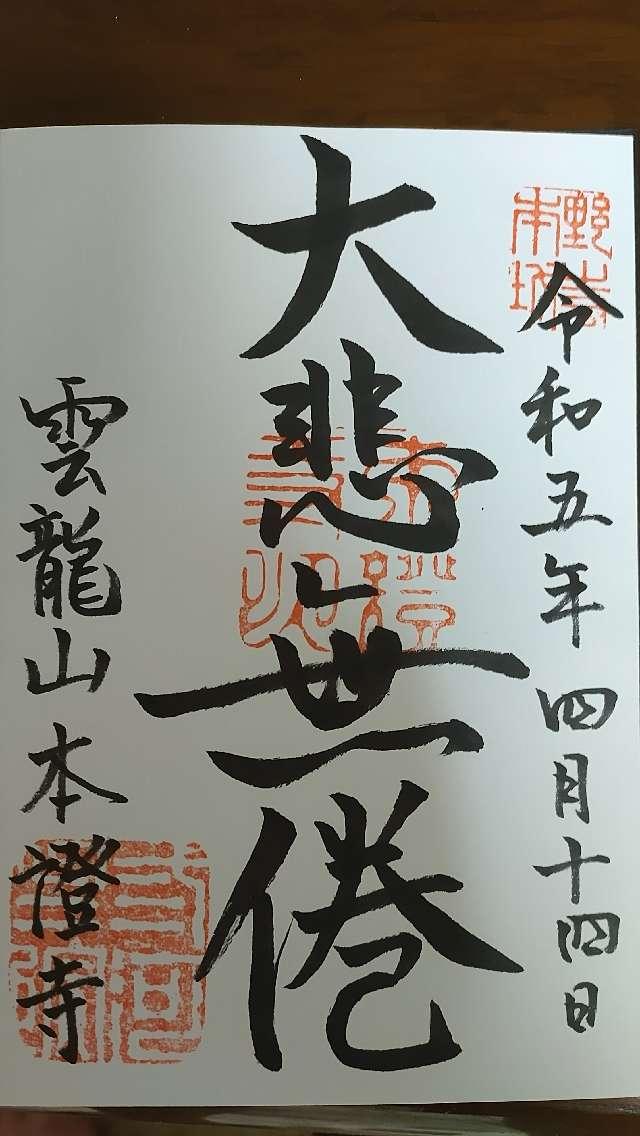 令和五年四月十四日
大悲無倦
雲龍山本證寺